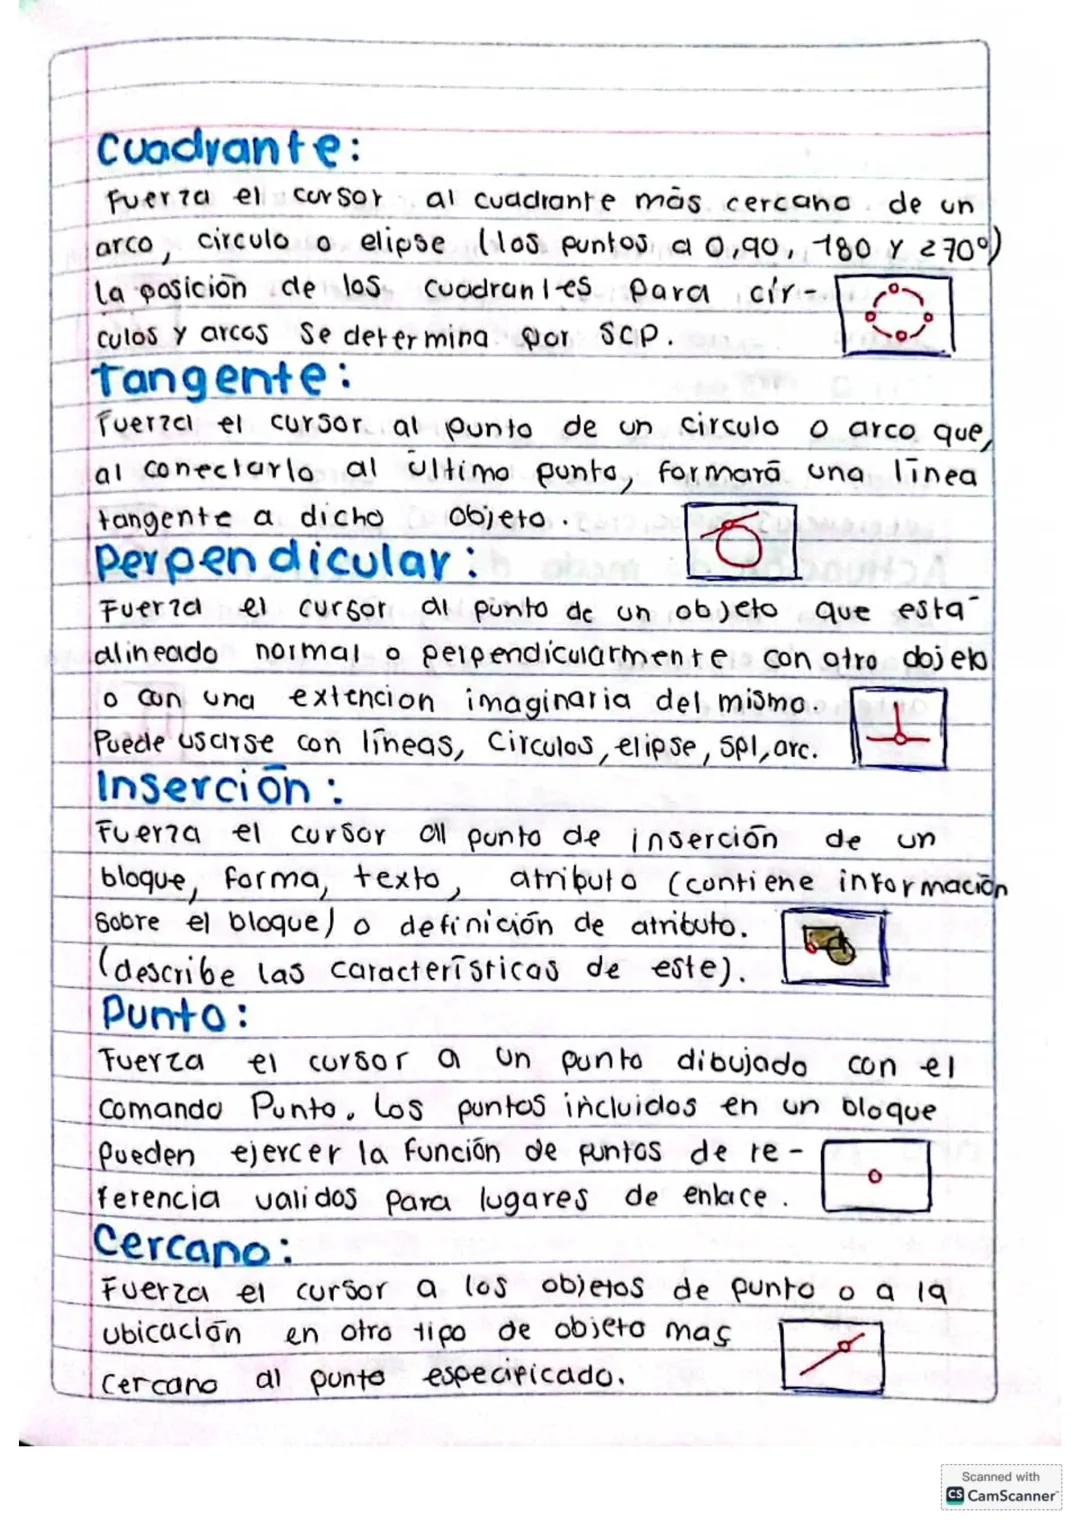 Cuadrante:
Fuerza el cursor al cuadrante más cercano de un
arco, circulo o elipse (los puntos a 0,90, 180 y 270°)
La posición de los cuadrantes para cír-
culos y arcos se determina por SCP.
Tangente:
Fuerza el cursor al punto de un circulo o arco que,
al conectarlo al último punto, formará una línea
tangente a dicho objeto.
Perpendicular:
Fuerza el cursor al punto de un objeto que esta
alineado normal o perpendicularmente con otro objeto
o con una extencion imaginaria del mismo.
Puede usarse con líneas, Circulos, elipse, spl, arc.
Inserción:
Fuerza el cursor all punto de inserción de un
bloque, forma, texto, atributo (contiene información
sobre el bloque) o definición de atributo.
(describe las características de este).
Punto:
Fuerza el cursor a un punto dibujado con el
comando Punto. Los puntos incluidos en un bloque
pueden ejercer la función de puntos de re-
ferencia validos para lugares de enlace.
Cercano:
Fuerza el cursor a los objetos de punto o a la
ubicación en otro tipo de objeto mas
cercano al punto especificado.
Scanned with
CS CamScanner